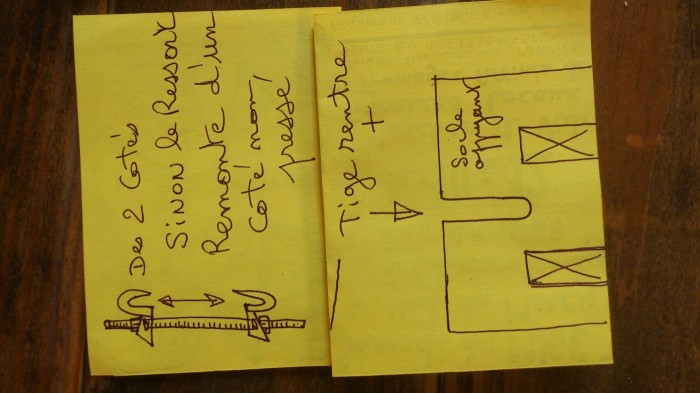 Des 2 Côtés
Sinon le Ressort
Remonte d'un
Côté non,
pressé
Tige rentre
+
Soile
appuyant